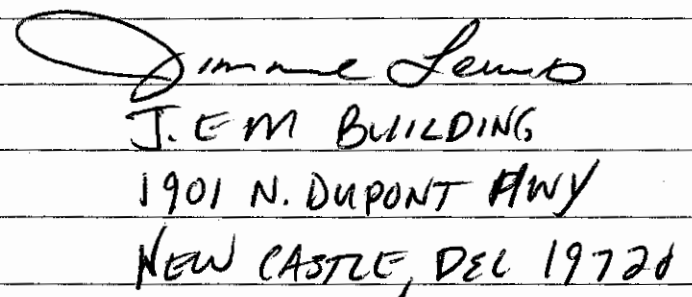 Jimmie Lewis
J. E M BUILDING
1901 N. DUPONT HWY
NEW CASTLE, DEL 19720